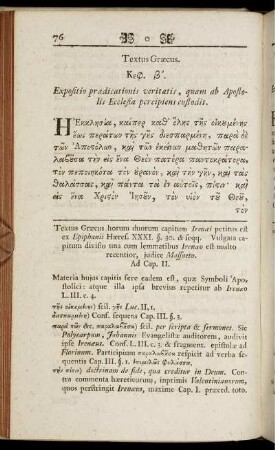 76
Textus Græcus.
Κεφ. β'.
Expositio prædicationis veritatis, quam ab Apostolis
Ecclesia percipiens custodit.
Ἡ Ἐκκλησία, καίπερ καθ' ὅλης τῆς οἰκουμένης
ἕως περάτων τῆς γῆς διεσπαρμένη, παρὰ δὲ
τῶν Ἀποστόλων, καὶ τῶν ἐκείνων μαθητῶν παραλαβοῦσα
τὴν εἰς ἕνα Θεὸν πατέρα παντοκράτορα,
τὸν πεποιηκότα τὸν οὐρανὸν, καὶ τὴν γῆν, καὶ τὰς
θαλάσσας, καὶ πάντα τὰ ἐν αὐτοῖς, πίστιν· καὶ
εἰς ἕνα Χριστὸν Ἰησοῦν, τὸν υἱὸν τοῦ Θεοῦ,
τὸν
Textus Græcus horum duorum capitum Irenæi petitus est
ex Epiphanii Hæres. XXXI. §. 30. & seqq. Vulgata capitum
divisio una cum lemmatibus Irenæo est multo
recentior, judice Massueto.
Ad Cap. II.
Materia hujus capitis fere eadem est, quæ Symboli Apostolici:
atque illa ipsa brevius repetitur ab Irenæo
L. III. c. 4.
τῆς οἰκουμένης) scil. γῆς Luc. II, 1.
διεσπαρμένη) Conf. sequens Cap. III. §. 3.
παρὰ τῶν Ἀπ. παραλαβοῦσα) scil. per scripta & sermones. Sic
Polycarpum, Johannis Evangelistæ auditorem, audivit
ipse Irenæus. Conf. L. III. c. 3. & fragment. epistolæ ad
Florinum. Participium παραλαβοῦσα respicit ad verba
sequentis Cap. III. §. 1. ἐπιμελῶς φυλάσσει.
τὴν πίστιν) doctrinam de fide, quæ creditur in Deum. Contra
commenta hæreticorum, inprimis Valentinianorum,
quos perstringit Irenæus, maxime Cap. I. præced. toto.